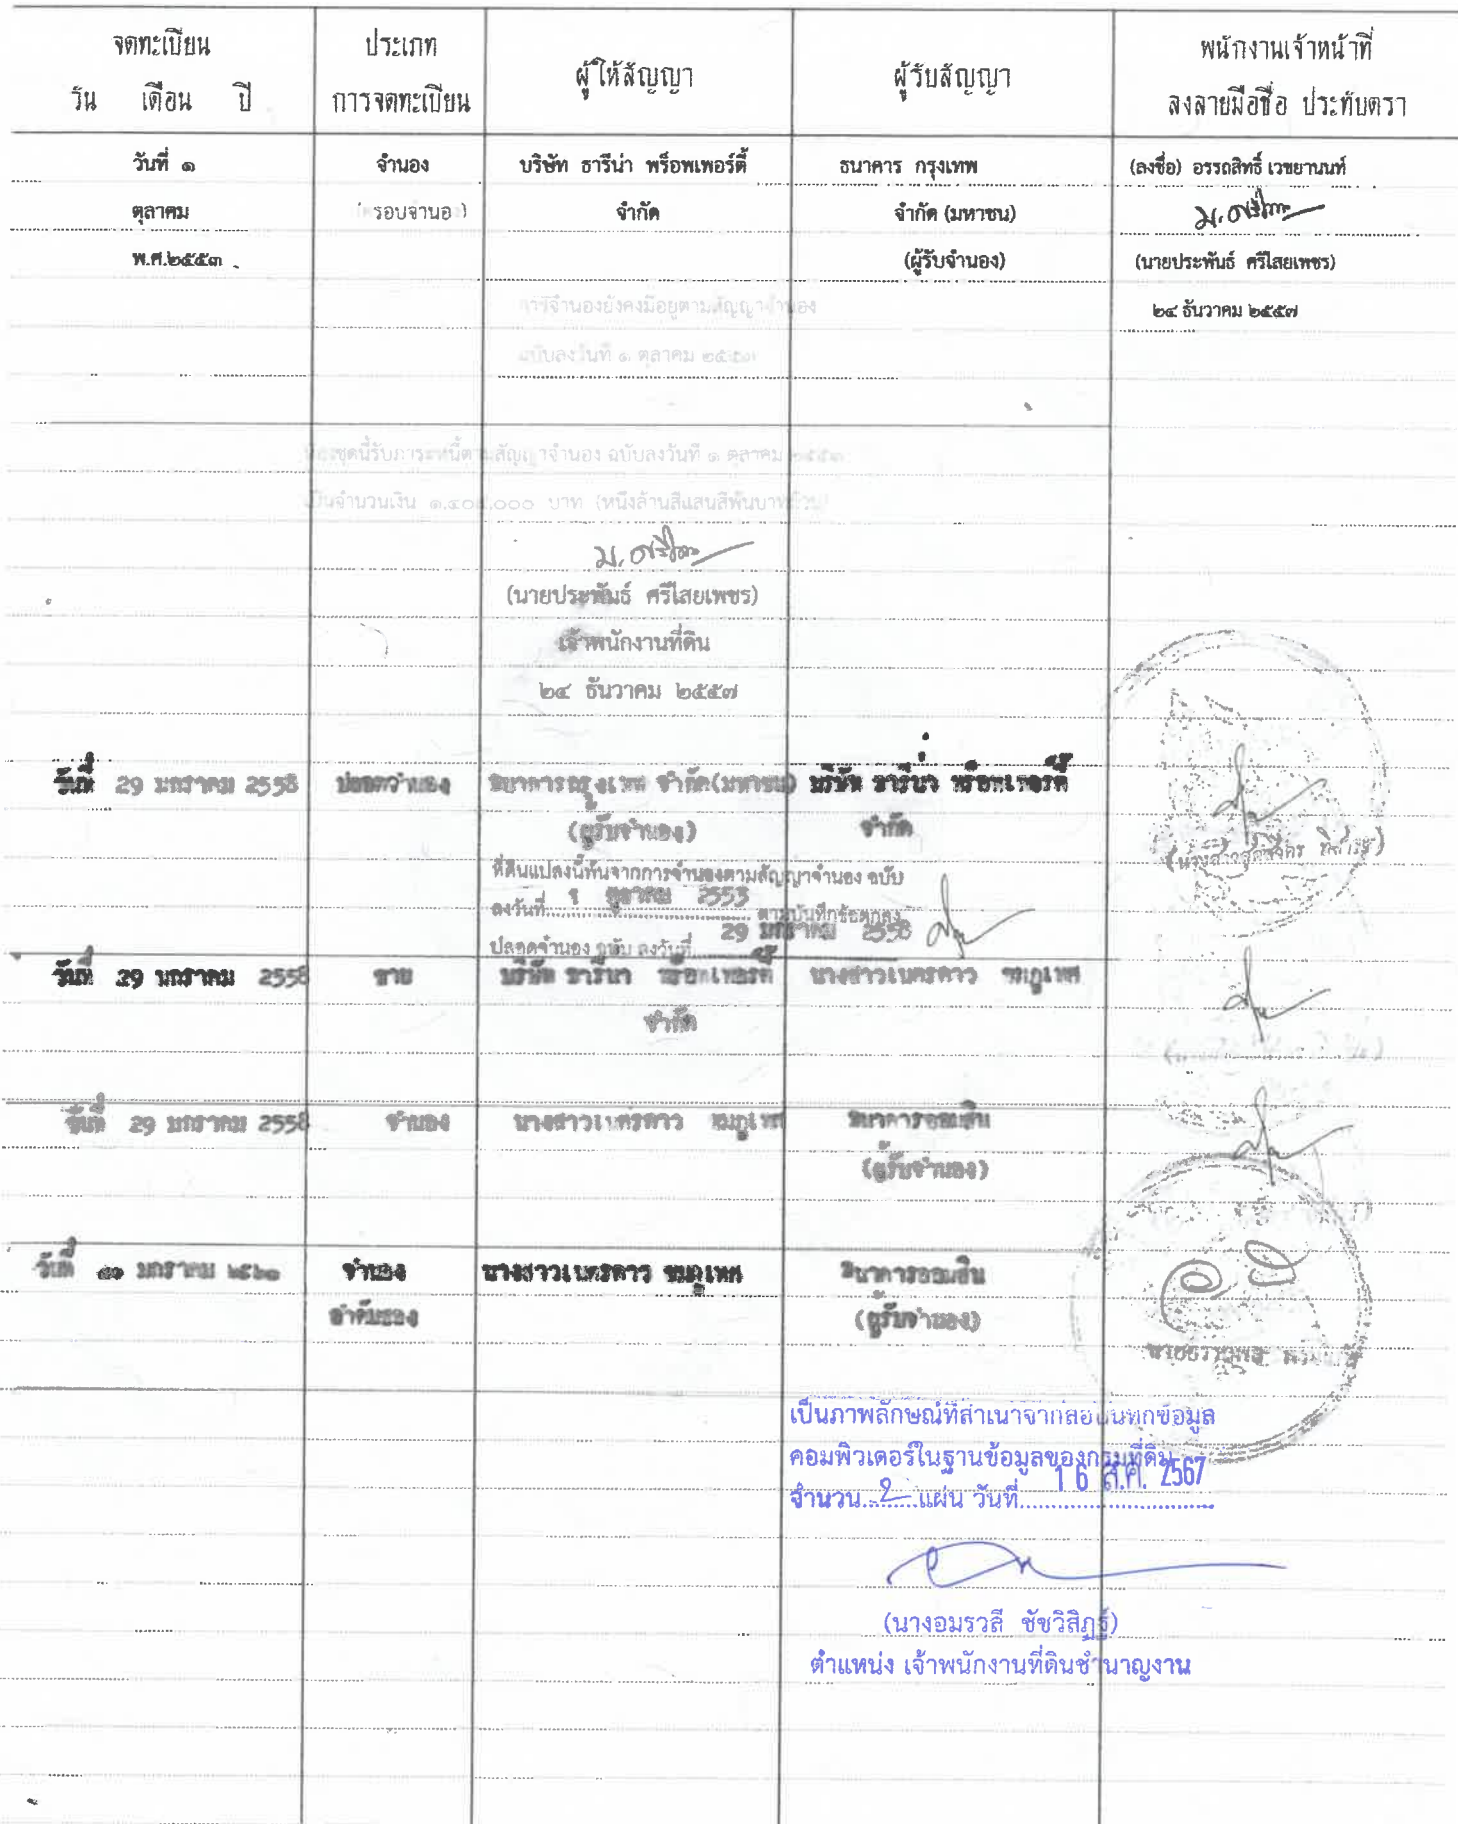 จดทะเบียน
วัน เดือน ปี
ประเภท
การจดทะเบียน
ผู้ให้สัญญา
ผู้รับสัญญา
พนักงานเจ้าหน้าที่
ลงลายมือชื่อ ประทับตรา
วันที่ ๑ จำนอง บริษัท ธารีน่า พร็อพเพอร์ตี้ ธนาคาร กรุงเทพ (ลงชื่อ) อรรถสิทธิ์ เวชยานนท์
ตุลาคม (ครอบจำนอง) จำกัด จำกัด (มหาชน)
พ.ศ.๒๕๕๓ (ผู้รับจำนอง) (นายประพันธ์ ศรีไสยเพชร)
การจำนองยังคงมีอยู่ตามสัญญาจำนอง ๒๔ ธันวาคม ๒๕๕๗
ฉบับลงวันที่ ๑ ตุลาคม ๒๕๕๓
ห้องชุดนี้รับภาระหนี้ตามสัญญาจำนอง ฉบับลงวันที่ ๑ ตุลาคม ๒๕๕๓
เป็นจำนวนเงิน ๑,๔๐๔,๐๐๐ บาท (หนึ่งล้านสี่แสนสี่พันบาทถ้วน)
(นายประพันธ์ ศรีไสยเพชร)
เจ้าพนักงานที่ดิน
๒๔ ธันวาคม ๒๕๕๗
วันที่ 29 มกราคม 2558 ปลอดจำนอง ธนาคารกรุงเทพ จำกัด(มหาชน) บริษัท ธารีน่า พร็อพเพอร์ตี้
(ผู้รับจำนอง) จำกัด
ที่ดินแปลงนี้พ้นจากการจำนองตามสัญญาจำนอง ฉบับ
ลงวันที่ 1 ตุลาคม 2553 ตามบันทึกข้อตกลง
ปลอดจำนอง ฉบับ ลงวันที่ 29 มกราคม 2558
วันที่ 29 มกราคม 2558 ขาย บริษัท ธารีน่า พร็อพเพอร์ตี้ นางสาวเนตรดาว ชมภูเทศ
จำกัด
วันที่ 29 มกราคม 2558 จำนอง นางสาวเนตรดาว ชมภูเทศ ธนาคารออมสิน
(ผู้รับจำนอง)
วันที่ ๓๑ มกราคม ๒๕๖๐ จำนอง นางสาวเนตรดาว ชมภูเทศ ธนาคารออมสิน
ลำดับสอง (ผู้รับจำนอง)
เป็นภาพลักษณ์ที่สำเนาจากสื่อบันทึกข้อมูล
คอมพิวเตอร์ในฐานข้อมูลของกรมที่ดิน
จำนวน 2 แผ่น วันที่ 16 ส.ค. 2567
(นางอมรวลี ชัชวิสิฏฐ์)
ตำแหน่ง เจ้าพนักงานที่ดินชำนาญงาน